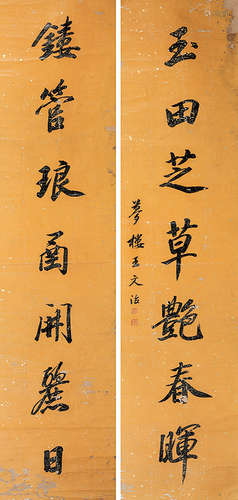 玉田芝草艷春暉
夢樓王文治
鏤管琅函開麗日